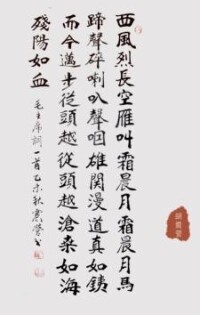 西風烈長空雁叫霜晨月霜晨月馬
蹄聲碎喇叭聲咽雄関漫道真如銕
而今邁步從頭越從頭越滄桒如海
殘陽如血
毛主席詞一首乙未秋寒營书